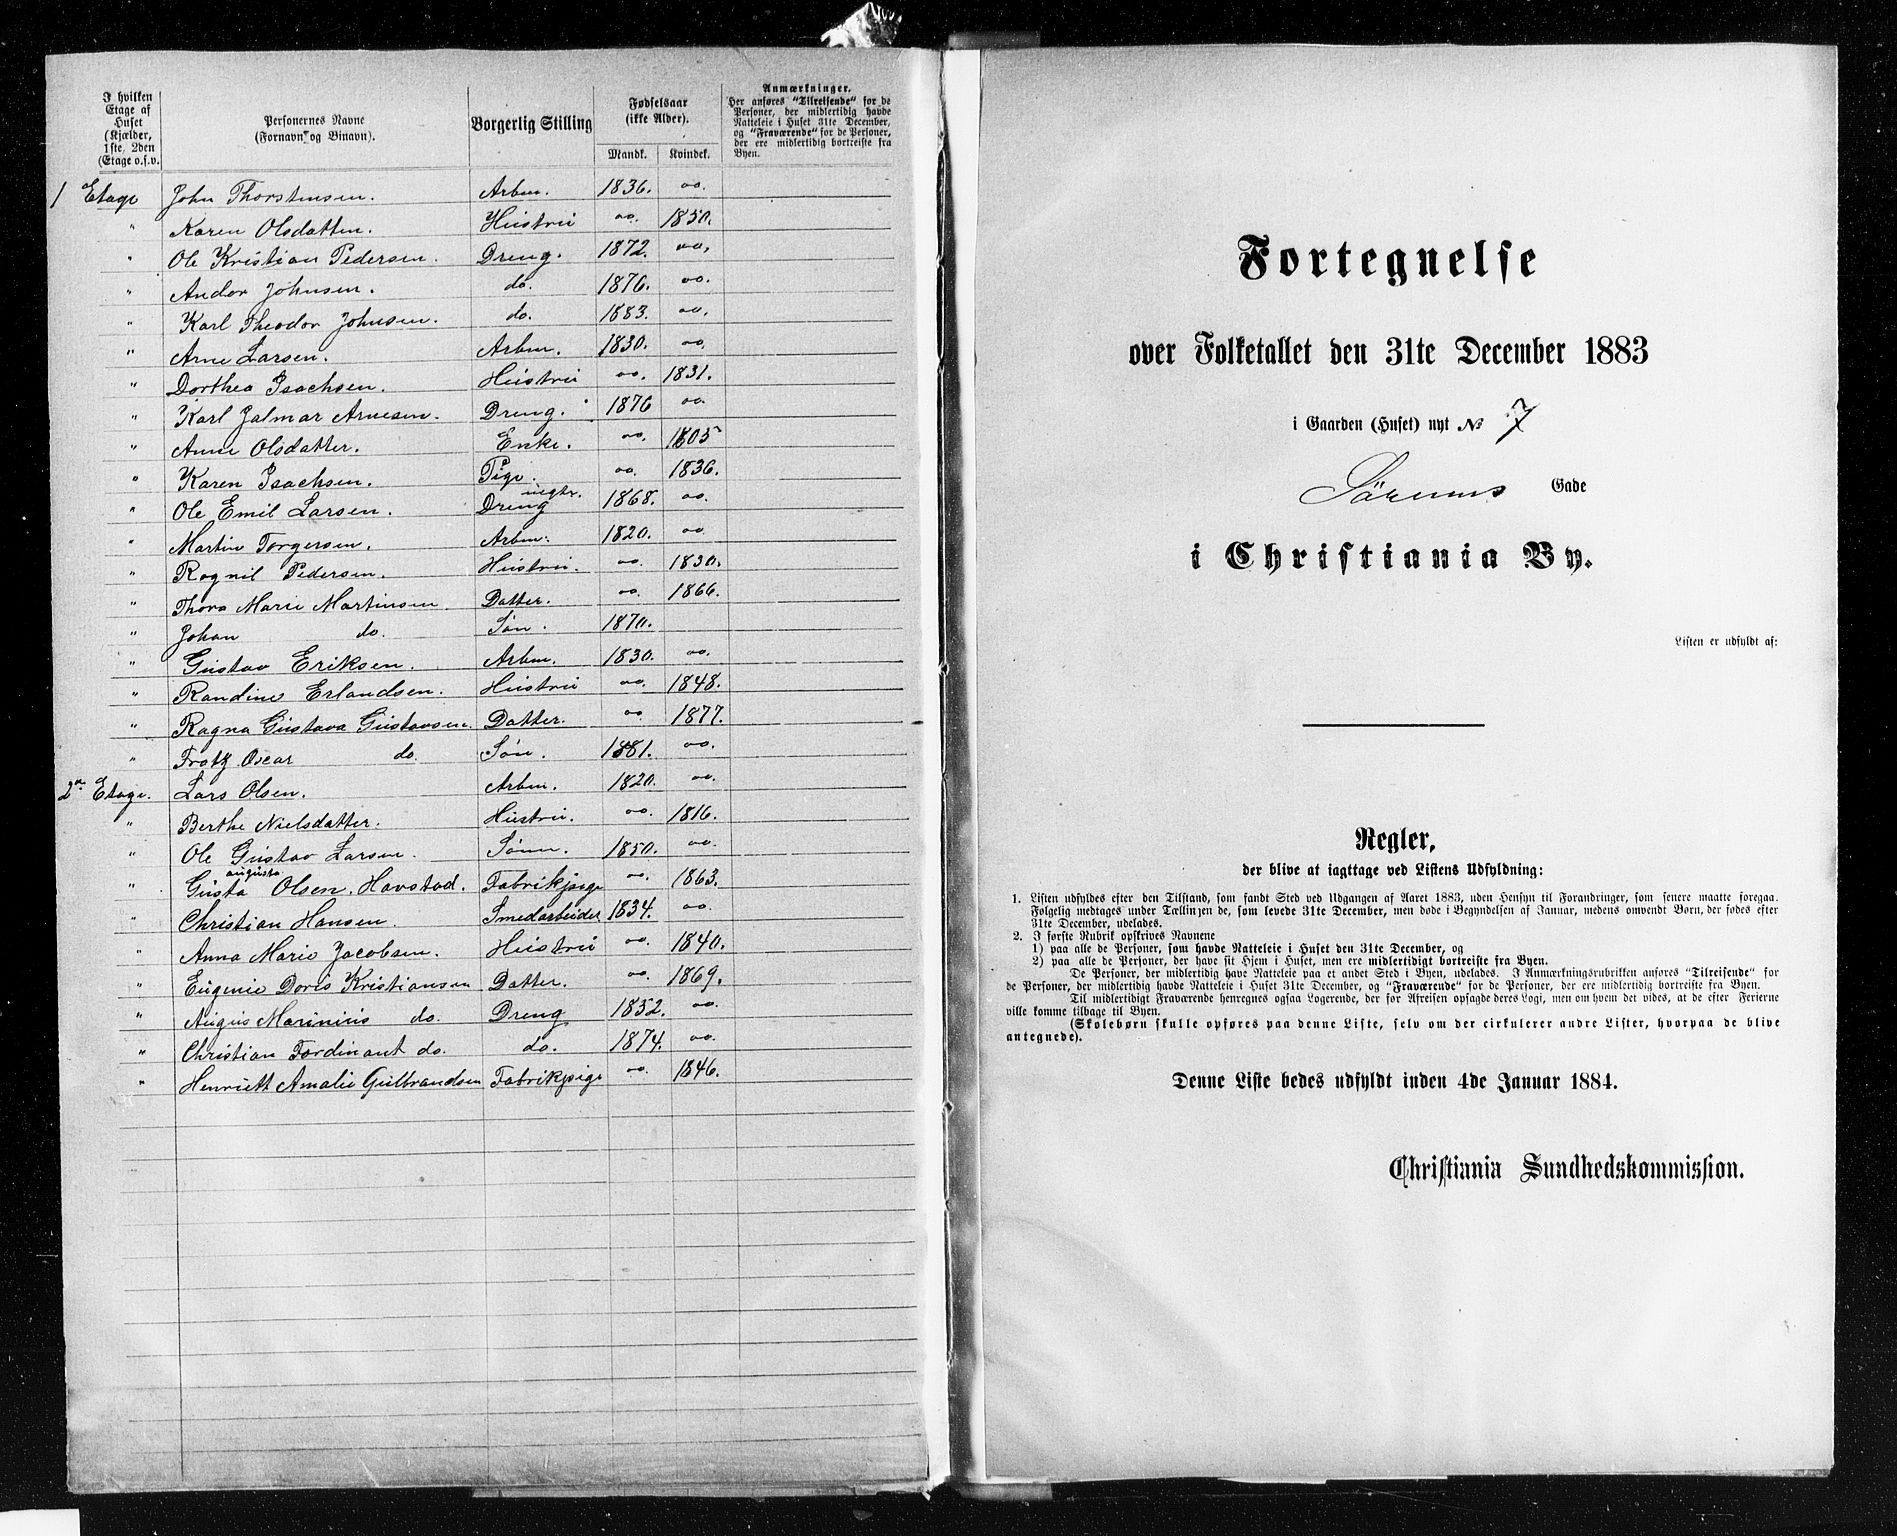 I hvilken
Etage af
Huset
(Kjælder,
1ste, 2den
(Etage o.s.v.
Personernes Navne
(Fornavn og Binavn).
Borgerlig Stilling
Fødselsaar
(ikke Alder).
Mandk. Kvindek.
Anmærkninger.
Her anføres "Tilreisende" for de
Personer, der midlertidig havde
Natteleie i Huset 31te December,
og "Fraværende" for de Personer,
der ere midlertidig bortreiste fra
Byen.
1 Etage John Thorstensen. Arbm. 1836. "
" Karen Olsdatten. Hustru " 1850.
" Ole Kristian Pedersen. Dreng. 1872. "
" Andor Johnsen. do. 1876. "
" Karl Theodor Johnsen. do. 1883. "
" Arne Larsen. Arbm. 1830. "
" Dorthea Isachsen. Hustru " 1831.
" Karl Jalmar Arnesen. Dreng. 1876 "
" Anne Olsdatter. Enke. " 1805
" Karen Isachsen. Pige. " 1836.
" Ole Emil Larsen. Dreng 1868. "
" Martin Torgersen. Arbm. 1820. "
" Ragnil Pedersen. Hustru. " 1830.
" Thora Marie Martinsen Datter. " 1866.
" Johan do. Søn. 1870.
" Gustav Eriksen. Arbm. 1830. "
" Randine Erlandsen. Hustru " 1848.
" Ragna Gustava Gustavsen. Datter. " 1877.
" Fratz Oscar do. Søn. 1881. "
2en Etage. Lars Olsen. Arbm. 1820. "
" Berthe Nielsdatter. Hustru. " 1816.
" Ole Gustav Larsen. Sønn. 1850. "
augusta
" Gusta Olsen. Havstad. Fabrikpige " 1863.
" Christian Hansen. Smedarbeider 1834. "
" Anna Marie Jacobsen. Hustru " 1840.
" Eugenie Doris Kristiansen Datter. " 1869.
" Augus Marinius do. Dreng 1852. "
" Christian Fordinant do. do. 1874. "
" Henriett Amalie Gulbrandsen Fabrikpige " 1846.
Fortegnelse
over Folketallet den 31te December 1883
i Gaarden (Huset) nyt No 7
Sørums Gade
i Christiania By.
Listen er udfyldt af:
Regler,
der blive at iagttage ved Listens Udfyldning:
1. Listen udfyldes efter den Tilstand, som fandt Sted ved Udgangen af Aaret 1883, uden Hensyn til Forandringer, som senere maatte foregaa.
Følgelig medtages under Tællingen de, som levede 31te December, men døde i Begyndelsen af Januar, medens omvendt Børn, der fødes efter
31te December, udelades.
2. I første Rubrik opskrives Navnene
1) paa alle de Personer, som havde Natteleie i Huset den 31te December, og
2) paa alle de Personer, der have sit Hjem i Huset, men ere midlertidigt bortreiste fra Byen.
De Personer, der midlertidig have Natteleie paa et andet Sted i Byen, udelades. I Anmærkningsrubrikken anføres "Tilreisende" for
de Personer, der midlertidig havde Natteleie i Huset 31te December, og "Fraværende" for de Personer, der ere midlertidig bortreiste fra Byen.
Til midlertidigt Fraværende henregnes ogsaa Logerende, der før Afreisen opsagde deres Logi, men om hvem det vides, at de efter Ferierne
ville komme tilbage til Byen.
(Skolebørn skulle opføres paa denne Liste, selv om der cirkulerer andre Lister, hvorpaa de blive
antegnede).
Denne Liste bedes udfyldt inden 4de Januar 1884.
Christiania Sundhedskommission.